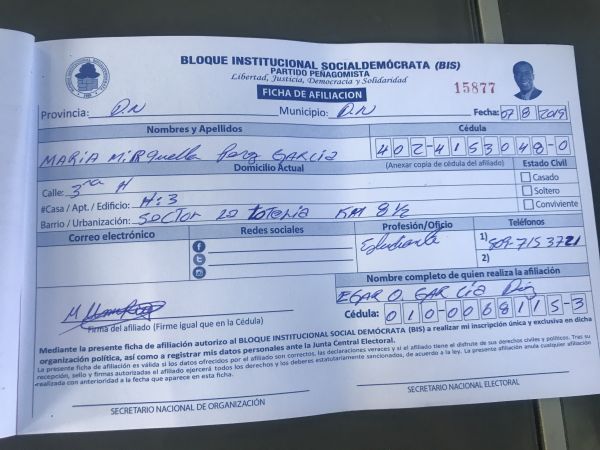 BLOQUE INSTITUCIONAL SOCIALDEMÓCRATA (BIS)
PARTIDO PEÑAGOMISTA
Libertad, Justicia, Democracia y Solidaridad
FICHA DE AFILIACION
15877
Provincia: D.N Municipio: D.N Fecha: 07 8 2019
Nombres y Apellidos Cédula
MARIA MIRQuella Perez GARCIA 402-4153048-0
Domicilio Actual (Anexar copia de cédula del afiliado) Estado Civil
Calle: 3ra H Casado
#Casa / Apt. / Edificio: H:3 Soltero
Barrio / Urbanización: Sector KM 8½ Conviviente
Correo electrónico Redes sociales Profesión/Oficio Teléfonos
Estudiante 1) 809-715 3721
2)
Nombre completo de quien realiza la afiliación
EGAR O. GARCÍA
Firma del afiliado (Firme igual que en la Cédula) Cédula: 010-0068115-3
Mediante la presente ficha de afiliación autorizo al BLOQUE INSTITUCIONAL SOCIAL DEMÓCRATA (BIS) a realizar mi inscripción única y exclusiva en dicha
organización política, así como a registrar mis datos personales ante la Junta Central Electoral.
La presente ficha de afiliación es válida si los datos ofrecidos por el afiliado son correctos, las declaraciones veraces y si el afiliado tiene el disfrute de sus derechos civiles y políticos. Tras su
recepción, sello y firmas autorizadas el afiliado ejercerá todos los derechos y los deberes estatutariamente sancionados, de acuerdo a la ley. La presente afiliación anula cualquier afiliación
realizada con anterioridad a la fecha que aparece en esta ficha.
SECRETARIO NACIONAL DE ORGANIZACIÓN SECRETARIO NACIONAL ELECTORAL